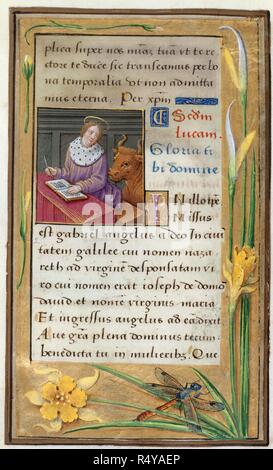 plica super nos miam tuam vt te re
ctore te duce sic transeamus per bo
na temporalia vt non admitta
mus eterna. Per xpm
Secdm
lucam.
Gloria ti
bi domine
In illo tpe
Missus
est gabriel angelus a deo In ciui
tatem galilee cui nomen naza
reth ad virginem desponsatam vi
ro cui nomen erat ioseph de domo
dauid et nomen virginis maria
Et ingressus angelus ad ea dixit
Aue gratia plena dominus tecum
benedicta tu in mulieribus Que
alamy
Image ID: R4YAEP
www.alamy.com